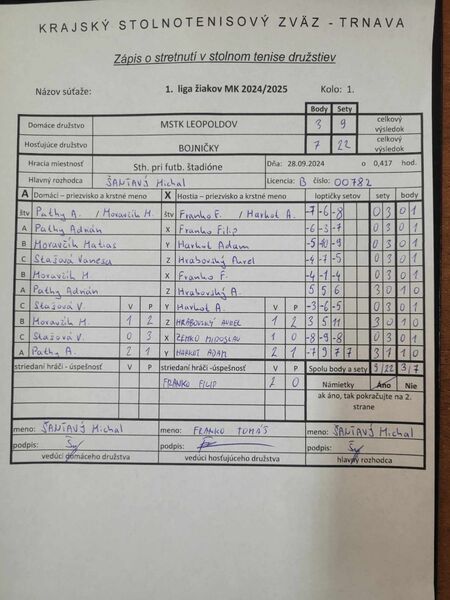 KRAJSKÝ STOLNOTENISOVÝ ZVÄZ - TRNAVA
Zápis o stretnutí v stolnom tenise družstiev
Názov súťaže: 1. liga žiakov MK 2024/2025 Kolo: 1.
Body Sety
Domáce družstvo MSTK LEOPOLDOV 3 9 celkový výsledok
Hosťujúce družstvo BOJNIČKY 7 22 celkový výsledok
Hracia miestnosť Sth. pri futb. štadióne Dňa: 28.09.2024 o 0,417 hod.
Hlavný rozhodca ŠANTAVÝ Michal Licencia: B číslo: 00782
A Domáci - priezvisko a krstné meno X Hostia - priezvisko a krstné meno loptičky setov sety body
štv Páthy A. / Moravčík M. štv Franko F. / Harkot A. -7 -6 -8 0 3 0 1
A Páthy Adrián X Franko Filip -6 -3 -7 0 3 0 1
B Moravčík Matias Y Harkot Adam -5 -10 -9 0 3 0 1
C Stašová Vanesa Z Hrabovský Aurel -4 -7 -5 0 3 0 1
B Moravčík M. X Franko F. -4 -1 -4 0 3 0 1
A Páthy Adrián Z Hrabovský A. 5 5 6 3 0 1 0
C Stašová V. V P Y Harkot A. V P -3 -6 -5 0 3 0 1
B Moravčík M. 1 2 Z HRABOVSKÝ AUREL 1 2 3 5 11 3 0 1 0
C Stašová V. 0 3 X ZEMKO MIROSLAV 1 0 -8 -9 -8 0 3 0 1
A Páthy A. 2 1 Y HARKOT ADAM 2 1 -7 9 7 7 3 1 1 0
striedaní hráči - úspešnosť V P striedaní hráči - úspešnosť V P Spolu body a sety 9/22 3/7
FRANKO FILIP 2 0 Námietky Áno Nie
ak áno, tak pokračujte na 2. strane
meno: ŠANTAVÝ Michal meno: FRANKO TOMÁŠ meno: ŠANTAVÝ Michal
podpis: podpis: podpis:
vedúci domáceho družstva vedúci hosťujúceho družstva hlavný rozhodca